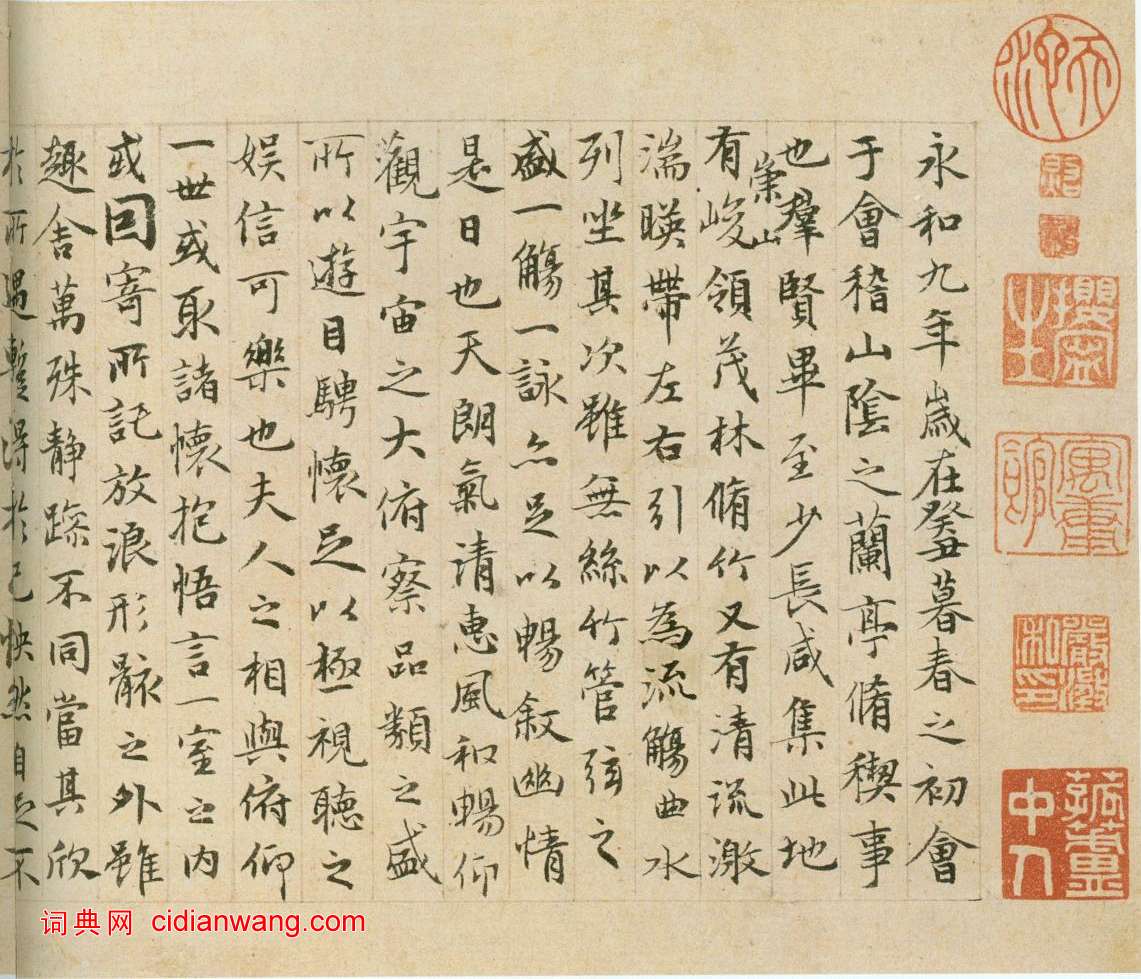 永和九年歲在癸丑暮春之初會
于會稽山陰之蘭亭脩稧事
也羣賢畢至少長咸集此地
有崇山峻領茂林脩竹又有清流激
湍暎帶左右引以為流觴曲水
列坐其次雖無絲竹管弦之
盛一觴一詠亦足以暢敘幽情
是日也天朗氣清惠風和暢仰
觀宇宙之大俯察品類之盛
所以遊目騁懷足以極視聽之
娛信可樂也夫人之相與俯仰
一世或取諸懷抱悟言一室之內
或因寄所託放浪形骸之外雖
趣舍萬殊靜躁不同當其欣
於所遇蹔得於己怏然自足不
词典网 cidianwang.com